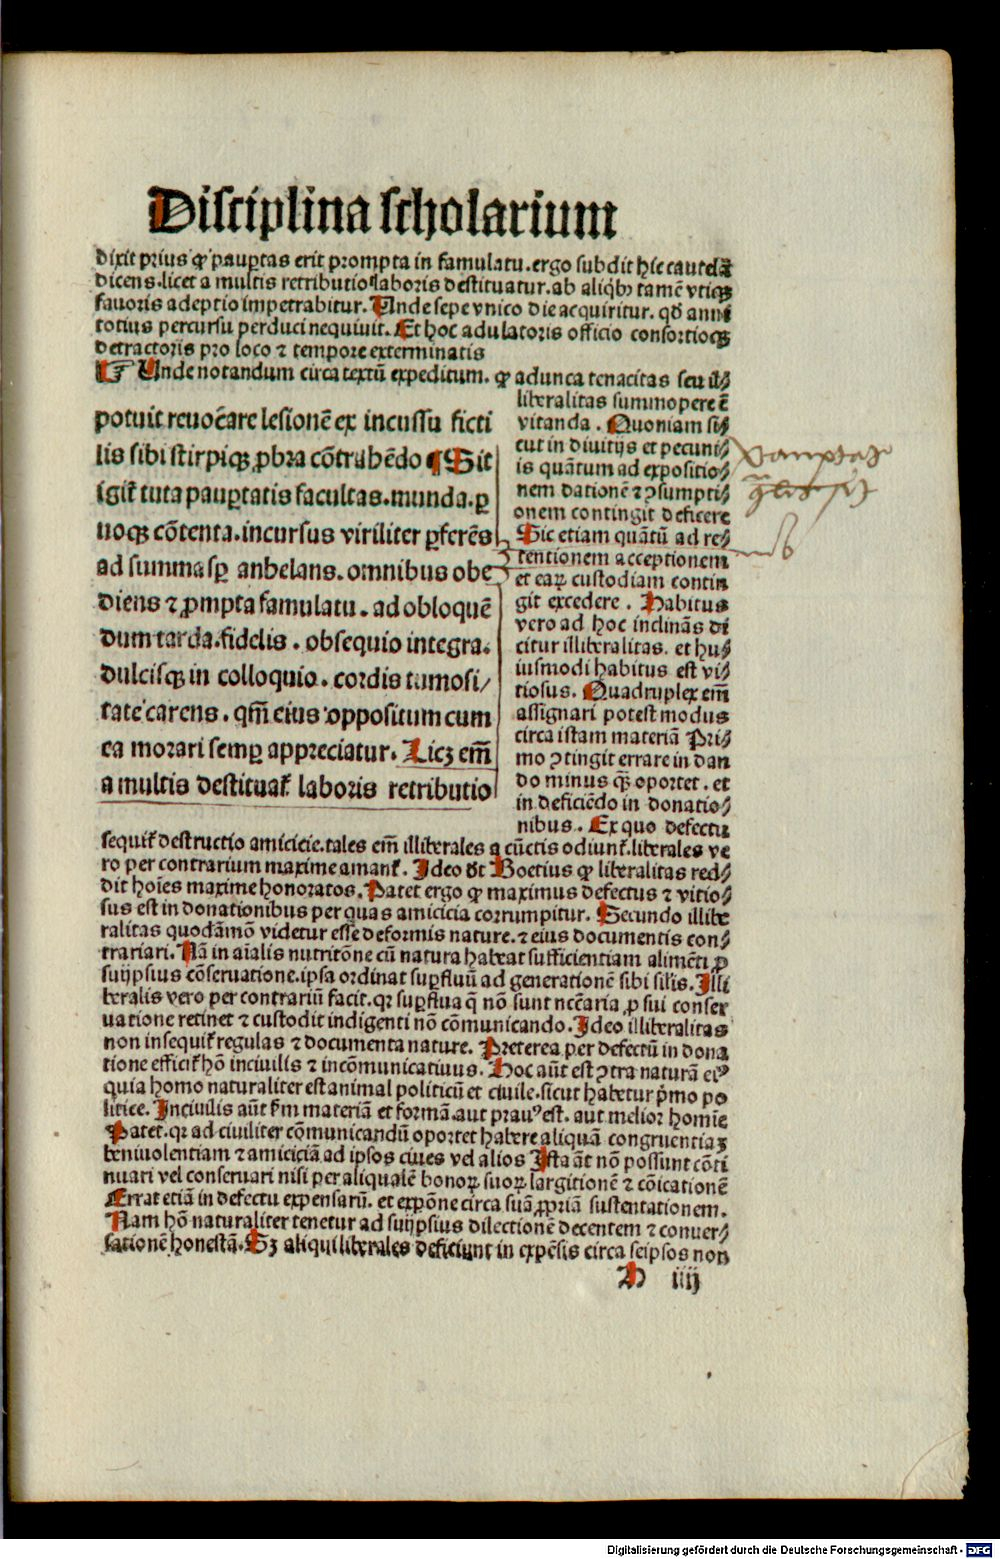 Disciplina scholarium
dixit prius ꝙ paupertas erit prompta in famulatu. ergo subdit hic cautelã
dicens. licet a multis retributio laboris destituatur. ab aliqbꝫ tamẽ vtiqꝫ
fauoris adeptio impetrabitur. Unde sepe vnico die acquiritur. qđ anni
totius percursu perduci nequiuit. Et hoc adulatoris officio consortioqꝫ
detractoris pro loco ⁊ tempore exterminatis
Unde notandum circa textũ expeditum. ꝙ adunca tenacitas seu il⸗
liberalitas summopere ẽ
vitanda. Quoniam si⸗
cut in diuitijs et pecuni⸗
is quãtum ad expositio⸗
nem dationẽ ⁊ ꝯsumpti⸗
onem contingit deficere
Sic etiam quãtũ ad re⸗
tentionem acceptionem
et earꝝ custodiam contin
git excedere. Habitus
vero ad hoc inclinãs di
citur illiberalitas. et hu⸗
iusmodi habitus est vi⸗
tiosus. Quadruplex em̃
assignari potest modus
circa istam materiã Pri⸗
mo ꝯtingit errare in dan
do minus qꝫ̃ oportet. et
in deficiẽdo in donatio⸗
nibus. Ex quo defectu
potuit reuocare lesionẽ ex incussu ficti
lis sibi stirpiqꝫ ꝓbra cõtrahẽdo ¶ Sit
igit᷑ tuta paup̱tatis facultas. munda. p̱
uoqꝫ cõtenta. incursus viriliter p̱ferẽs
ad summa sp̱ anhelans. omnibus obe
diens ⁊ ꝓmpta famulatu. ad obloquẽ
dum tarda. fidelis. obsequio integra.
dulcisqꝫ in colloquio. cordis tumosi/
tate carens. qm̃ eius oppositum cum
ea morari semp̱ appreciatur. Licꝫ em̃
a multis destituat᷑ laboris retributio
sequit᷑ destructio amicicie. tales em̃ illiberales a cũctis odiunt᷑. liberales ve
ro per contrarium maxime amant᷑. Ideo dt̃ Boetius ꝙ liberalitas red⸗
dit hoĩes maxime honoratos. Patet ergo ꝙ maximus defectus ⁊ vitio⸗
sus est in donationibus per quas amicicia corrumpitur. Secundo illibe
ralitas quodãmõ videtur esse deformis nature. ⁊ eius documentis con⸗
trariari. Nã in aĩalis nutritõne cũ natura habeat sufficientiam alimẽti ꝓ
suijpsius cõseruatione. ipsa ordinat sup̱fluũ ad generationẽ sibi sil̃is. Illi
beralis vero per contrariũ facit. qꝛ sup̱flua q̃ nõ sunt nc̃earia ꝓ sui conser
uatione retinet ⁊ custodit indigenti nõ cõmunicando. Ideo illiberalitas
non insequit᷑ regulas ⁊ documenta nature. Preterea per defectũ in dona
tione efficit᷑ hõ inciuilis ⁊ incõmunicatiuus. Hoc aũt est ꝯtra naturã eiꝰ
quia homo naturaliter est animal politicũ et ciuile. sicut habetur p̃mo po
litice. Inciuilis aũt fm̃ materiã et formã aut prauꝰ est. aut melior homĩe
Patet. qꝛ ad ciuiliter cõmunicandũ oportet habere aliquã congruentiaꝫ
beniuolentiam ⁊ amiciciã ad ipsos ciues vel alios Ista aũt nõ possunt cõti
nuari vel conseruari nisi per aliqualẽ bonoꝝ suoꝝ largitionẽ ⁊ cõicationẽ
Errat etiã in defectu expensarũ. et expõne circa suã ꝓpriã sustentationem.
Nam hõ naturaliter tenetur ad suijpsius dilectionẽ decentem ⁊ conuer⸗
sationẽ honestã. Sꝫ aliqui liberales deficiunt in expẽsis circa seipsos non
D iiij
Digitalisierung gefördert durch die Deutsche Forschungsgemeinschaft - DFG